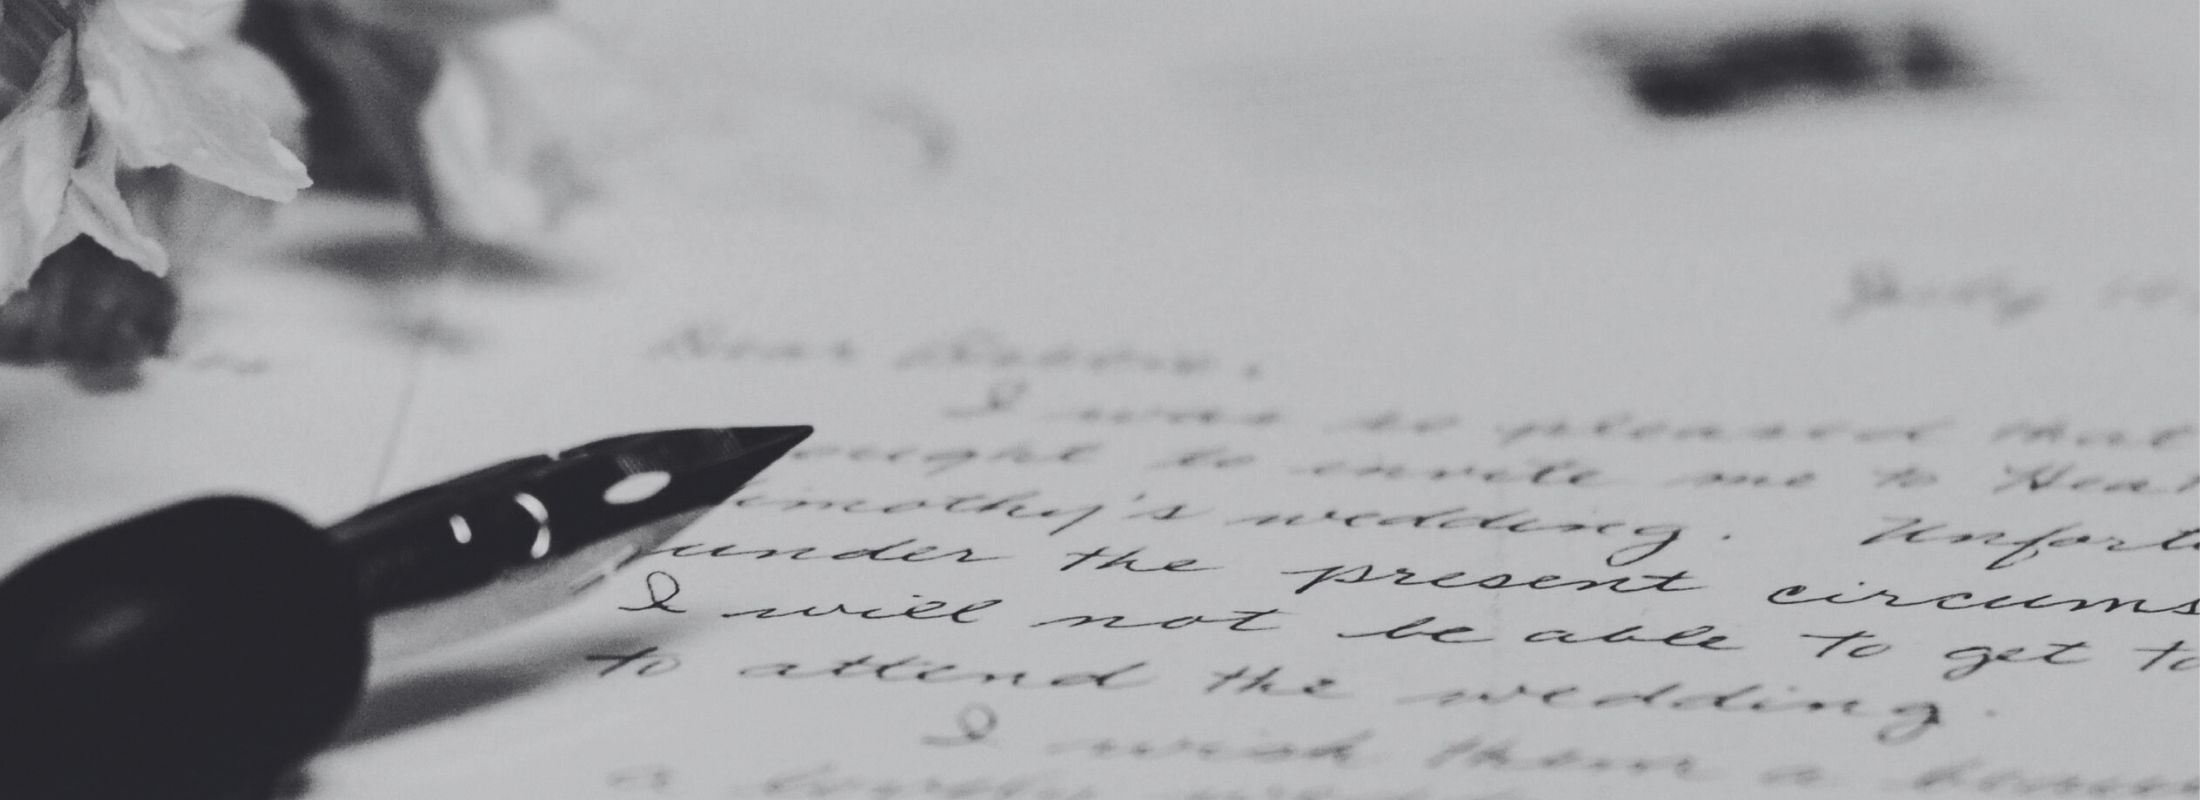 July
Dear
I was so pleased that
ought to invite me to
imothy's wedding. Unfort
under the present circums
I will not be able to get to
to attend the wedding.
I wish them a
a lovely